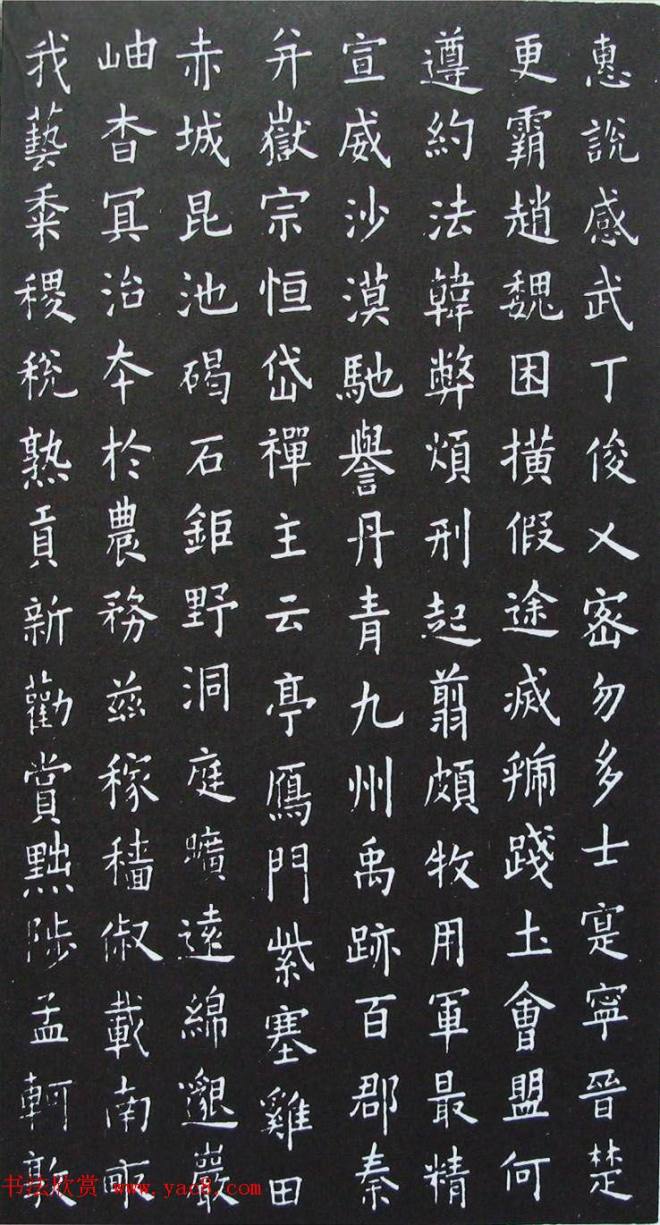 惠說感武丁俊乂密勿多士寔寧晉楚
更霸趙魏困撗假途滅虢踐土會盟何
遵約法韓弊煩刑起翦頗牧用軍最精
宣威沙漠馳譽丹青九州禹跡百郡秦
并嶽宗恒岱禪主云亭鴈門紫塞雞田
赤城昆池碣石鉅野洞庭曠遠綿邈巖
岫杳冥治夲於農務茲稼穡俶載南畝
我藝黍稷稅熟貢新勸賞黜陟孟軻敦
书法欣赏 www.yac8.com